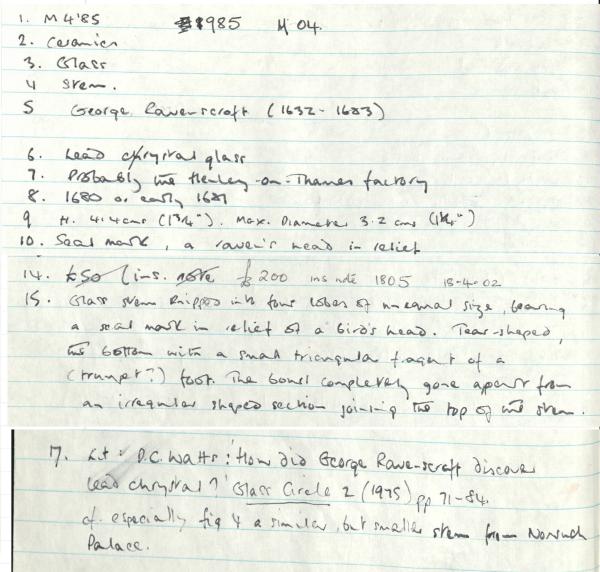 1. M 4'85 1985 M 04.
2. Ceramics
3. Glass
4 Stem.
5 George Ravenscroft (1632 - 1683)
6. Lead chrystal glass
7. Probably the Henley-on-Thames factory
8. 1680 or early 1681
9 H. 4.4 cms (1 3/4"). Max. Diameter 3.2 cms (1 1/4")
10. Seal mark, a raven's head in relief
14. £50 (ins. note £200 ins note 1805 18-4-02
15. Glass stem knipped into four lobes of unequal size, bearing
a seal mark in relief of a bird's head. Tear-shaped,
the bottom with a small triangular fragent of a
(trumpet?) foot. The bowl completely gone apart from
an irregular shaped section joining the top of the stem.
17. Lit: D.C. Watts: 'How did George Ravenscroft discover
lead chrystal?' Glass Circle 2 (1975) pp 71-84.
cf. especially fig 4 a similar, but smaller stem from Nonsuch
Palace.